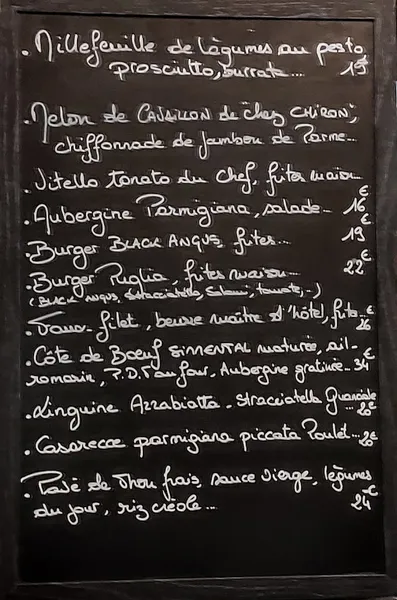 . Millefeuille de légumes au pesto
prosciutto, burrata... 19€
. Melon de CAVAILLON de "chez CHIRON",
chiffonnade de jambon de Parme...
. Vitello tonato du Chef, frites maison
. Aubergine Parmigiana, salade.. 16€
. Burger BLACK ANGUS, frites... 19€
. Burger Puglia, frites maison... 22€
(BLACK ANGUS, Stracciatella, Salami, tomate,..)
. Faux-filet, beurre maître d'hôtel, frites 26€
. Côte de Boeuf SIMENTAL maturée, ail-
romarin, P.D.T au four, Aubergine gratinée.. 34€
. Linguine Azzabiatta - Stracciatella Guanciale
. Casarecce parmigiana piccata Poulet...
. Pavé de Thon frais, sauce vierge, légumes
du jour, riz créole... 24€